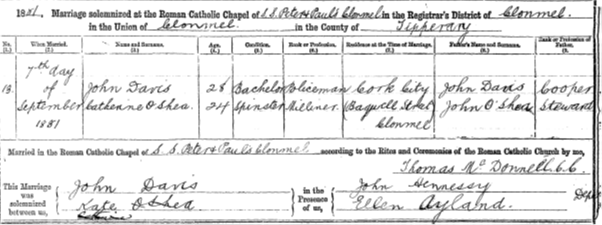 1881. Marriage solemnized at the Roman Catholic Chapel of S.S. Peter & Paul's Clonmel in the Registrar's District of Clonmel
in the Union of Clonmel in the County of Tipperary
No. When Married. Name and Surname. Age. Condition. Rank or Profession. Residence at the Time of Marriage. Father's Name and Surname. Rank or Profession of Father.
(1.) (2.) (3.) (4.) (5.) (6.) (7.) (8.) (9.)
7th day
13. of John Davis 28 Bachelor Policeman Cork City John Davis Cooper
September Catherine O'Shea. 24 Spinster Milliner. Bagwell Street John O'Shea Steward
1881 Clonmel
Married in the Roman Catholic Chapel of S.S. Peter & Paul's Clonmel according to the Rites and Ceremonies of the Roman Catholic Church by me,
Thomas McDonnell C.C.
This Marriage was solemnized between us,
John Davis
Kate O'Shea
in the Presence of us,
John Hennessy
Ellen Ayland.